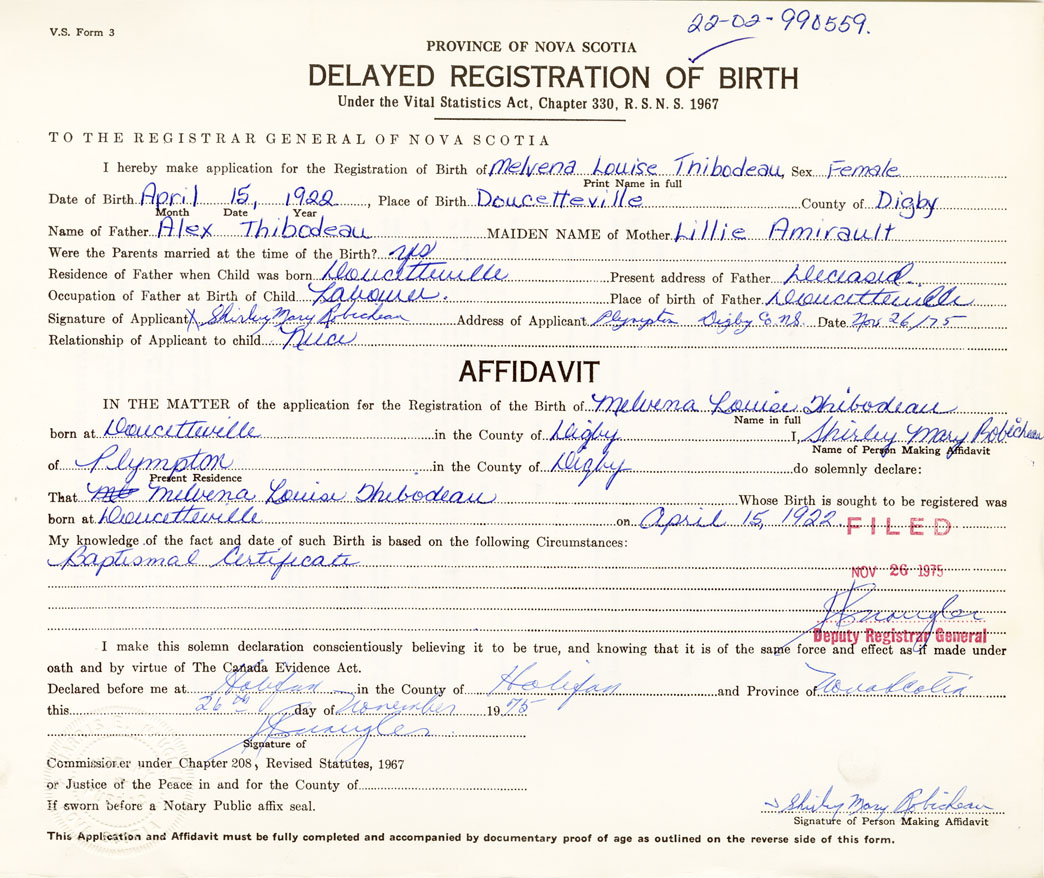 V.S. Form 3
22-02-990559.
PROVINCE OF NOVA SCOTIA
DELAYED REGISTRATION OF BIRTH
Under the Vital Statistics Act, Chapter 330, R. S. N. S. 1967
TO THE REGISTRAR GENERAL OF NOVA SCOTIA
I hereby make application for the Registration of Birth of Melvena Louise Thibodeau, Sex Female
Print Name in full
Date of Birth April 15, 1922, Place of Birth Doucetteville County of Digby
Month Date Year
Name of Father Alex Thibodeau MAIDEN NAME of Mother Lillie Amirault
Were the Parents married at the time of the Birth? yes
Residence of Father when Child was born Doucetteville Present address of Father Deceased
Occupation of Father at Birth of Child Labourer. Place of birth of Father Doucetteville
Signature of Applicant X Shirley Mary Robicheau Address of Applicant Plympton Digby Co N.S. Date Nov 26/75
Relationship of Applicant to child Niece
AFFIDAVIT
IN THE MATTER of the application for the Registration of the Birth of Melvena Louise Thibodeau
Name in full
born at Doucetteville in the County of Digby I, Shirley Mary Robicheau
Name of Person Making Affidavit
of Plympton in the County of Digby do solemnly declare:
Present Residence
That Melvena Louise Thibodeau Whose Birth is sought to be registered was
born at Doucetteville on April 15, 1922
FILED
My knowledge of the fact and date of such Birth is based on the following Circumstances:
Baptismal Certificate
NOV 26 1975
Deputy Registrar General
I make this solemn declaration conscientiously believing it to be true, and knowing that it is of the same force and effect as if made under
oath and by virtue of The Canada Evidence Act.
Declared before me at Halifax in the County of Halifax and Province of Nova Scotia
this 26th day of November 1975
Signature of
Commissioner under Chapter 208, Revised Statutes, 1967
or Justice of the Peace in and for the County of
If sworn before a Notary Public affix seal.
Shirley Mary Robicheau
Signature of Person Making Affidavit
This Application and Affidavit must be fully completed and accompanied by documentary proof of age as outlined on the reverse side of this form.